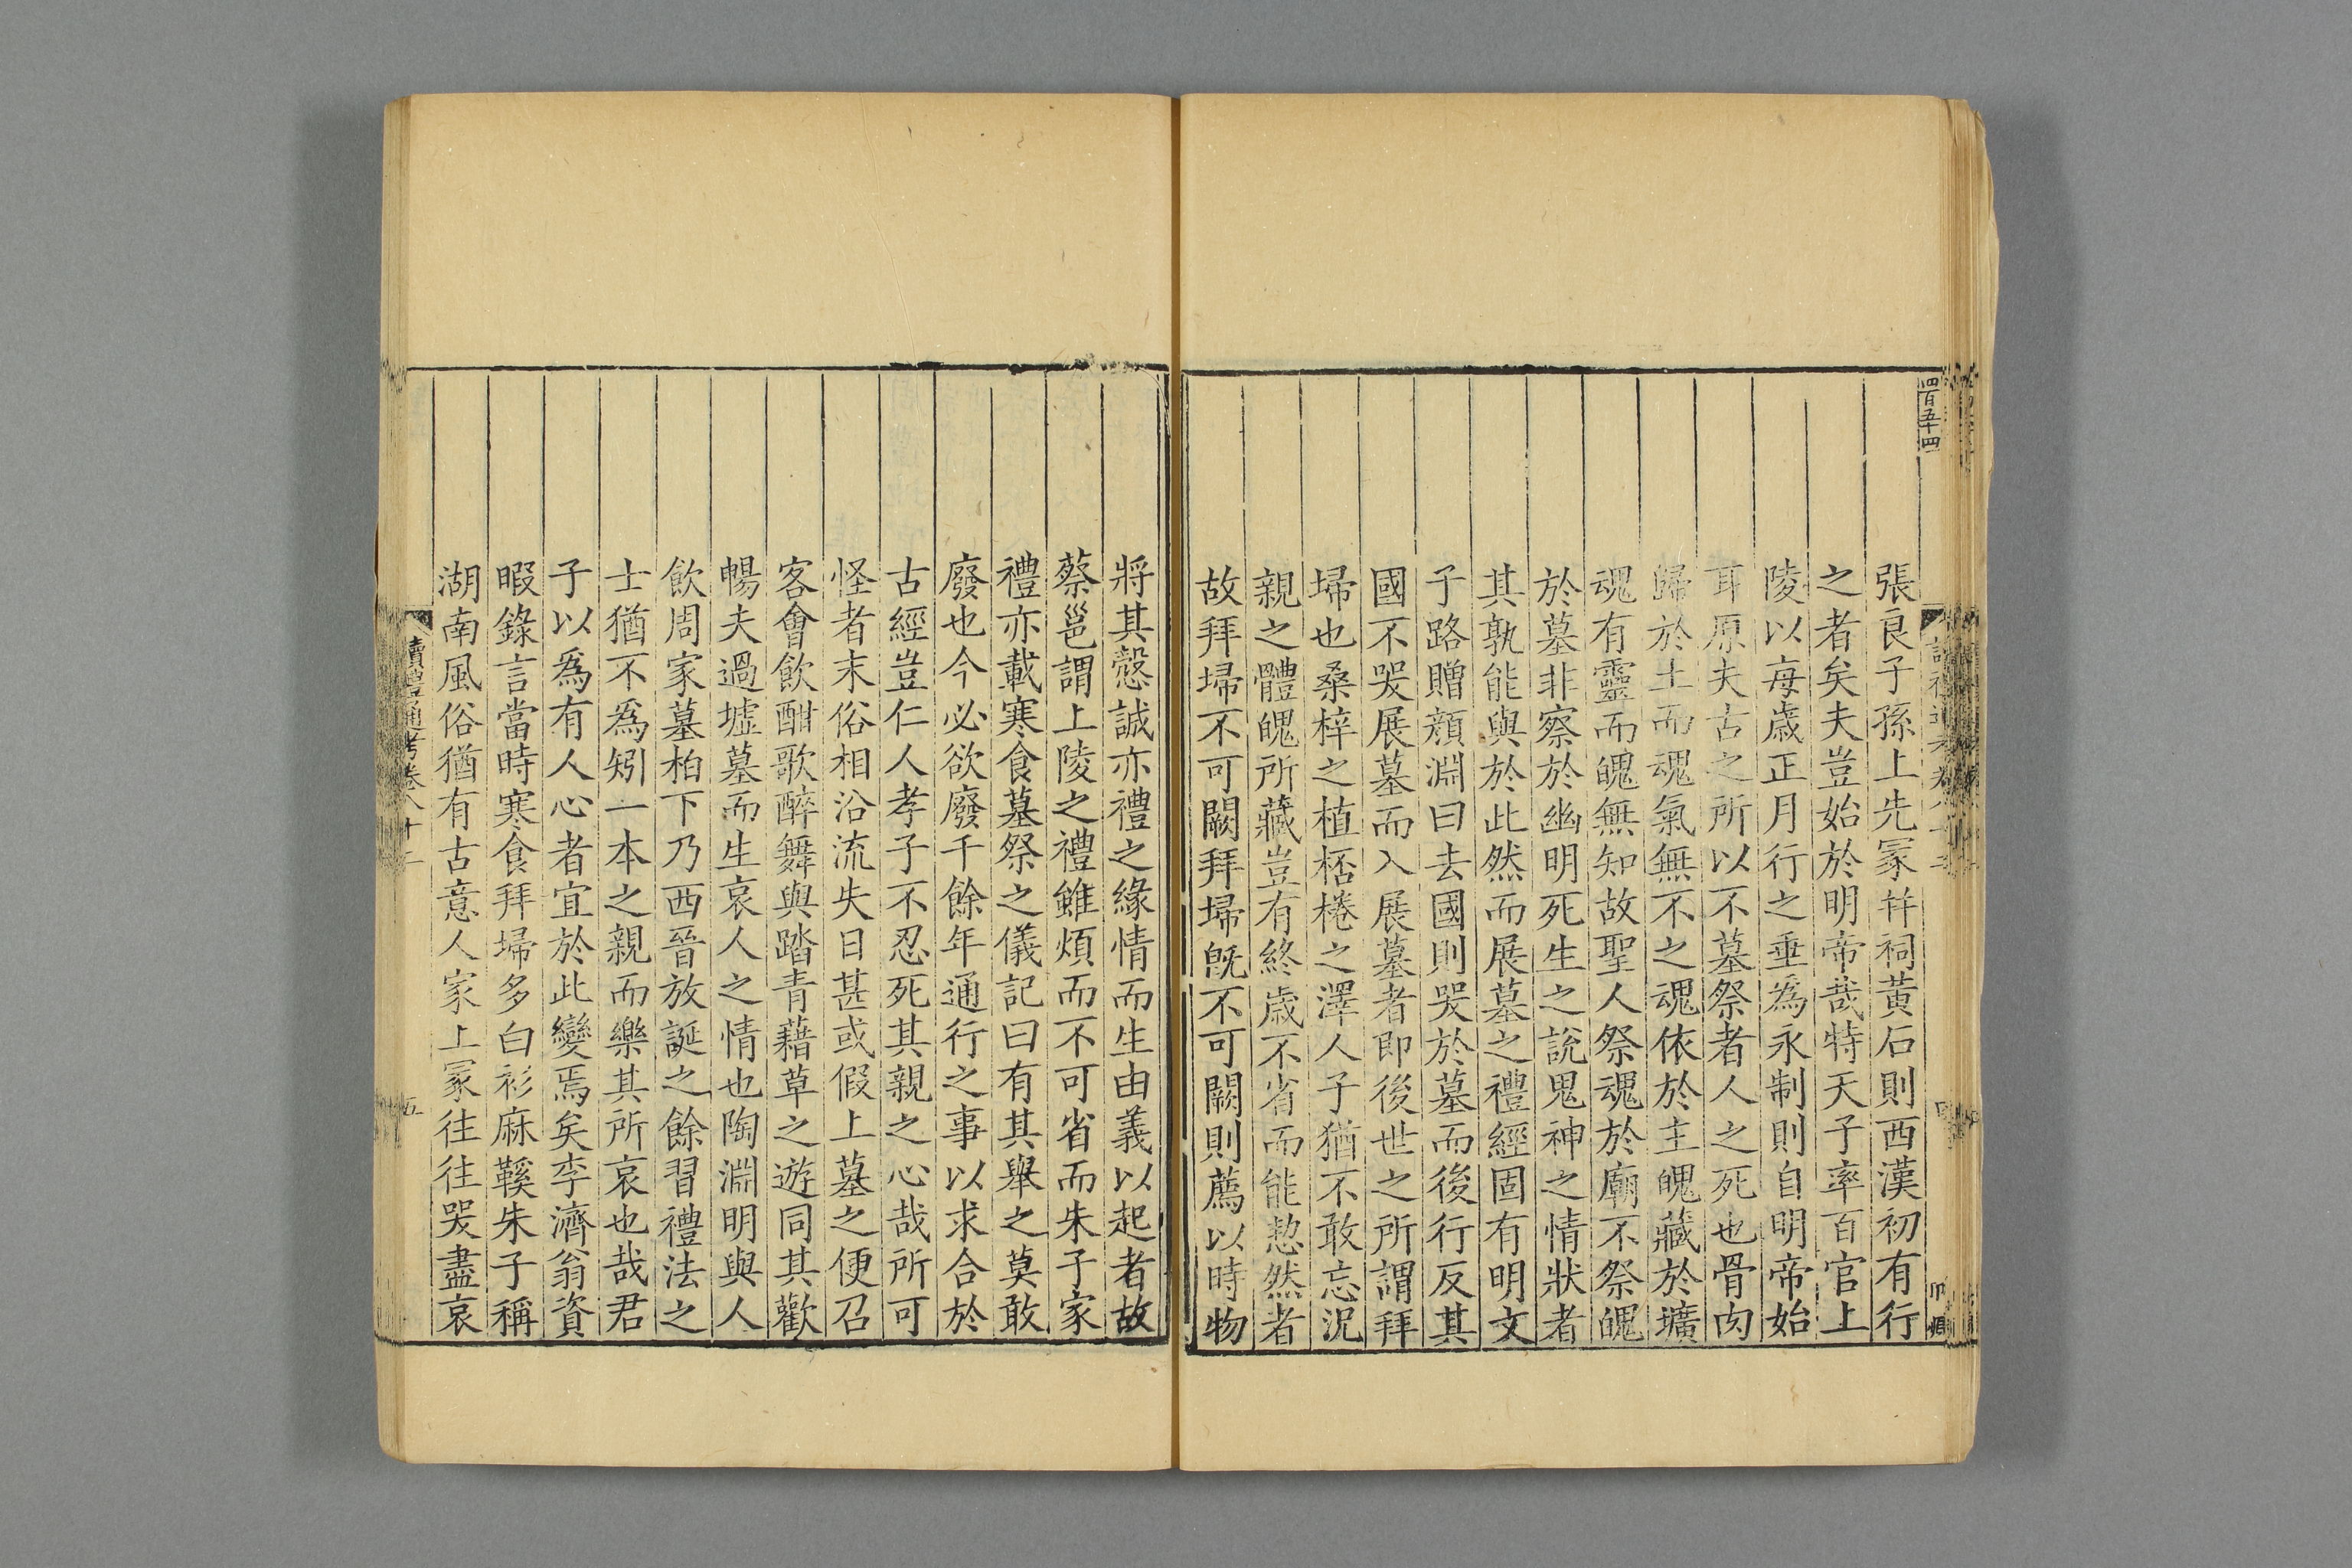 四百五十四
張良子孫上先冢并祠黃石則西漢初有行
之者矣夫豈始於明帝哉特天子率百官上
陵以每歲正月行之垂為永制則自明帝始
耳原夫古之所以不墓祭者人之死也骨肉
歸於土而魂氣無不之魂依於主魄藏於壙
魂有靈而魄無知故聖人祭魂於廟不祭魄
於墓非察於幽明死生之說鬼神之情狀者
其孰能與於此然而展墓之禮經固有明文
子路贈顏淵曰去國則哭於墓而後行反其
國不哭展墓而入展墓者即後世之所謂拜
埽也桑梓之植桮棬之澤人子猶不敢忘況
親之體魄所藏豈有終歲不省而能愸然者
故拜埽不可闕拜埽既不可闕則薦以時物
將其愨誠亦禮之緣情而生由義以起者故
蔡邕謂上陵之禮雖煩而不可省而朱子家
禮亦載寒食墓祭之儀記曰有其舉之莫敢
廢也今必欲廢千餘年通行之事以求合於
古經豈仁人孝子不忍死其親之心哉所可
怪者末俗相沿流失日甚或假上墓之便召
客會飲酣歌醉舞與踏青藉草之遊同其歡
暢夫過墟墓而生哀人之情也陶淵明與人
飲周家墓柏下乃西晉放誕之餘習禮法之
士猶不為矧一本之親而樂其所哀也哉君
子以為有人心者宜於此變焉矣李濟翁資
暇錄言當時寒食拜埽多白衫麻鞵朱子稱
湖南風俗猶有古意人家上冢往往哭盡哀
讀禮通考卷八十
五